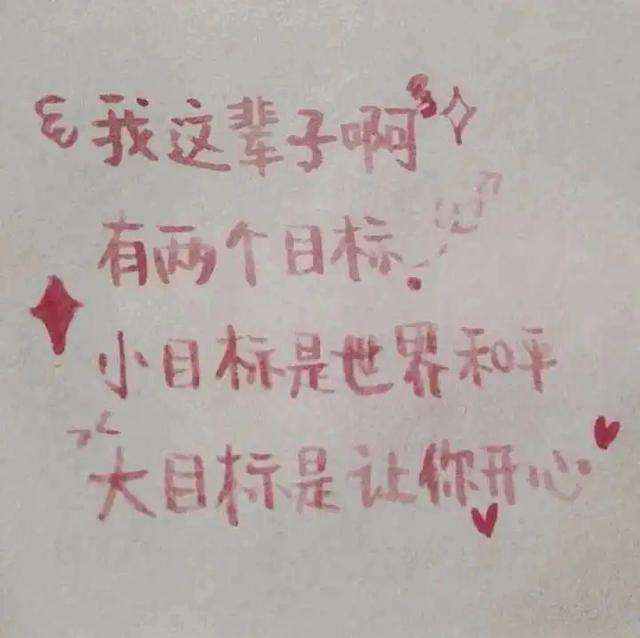 我这辈子啊
有两个目标.
小目标是世界和平
大目标是让你开心